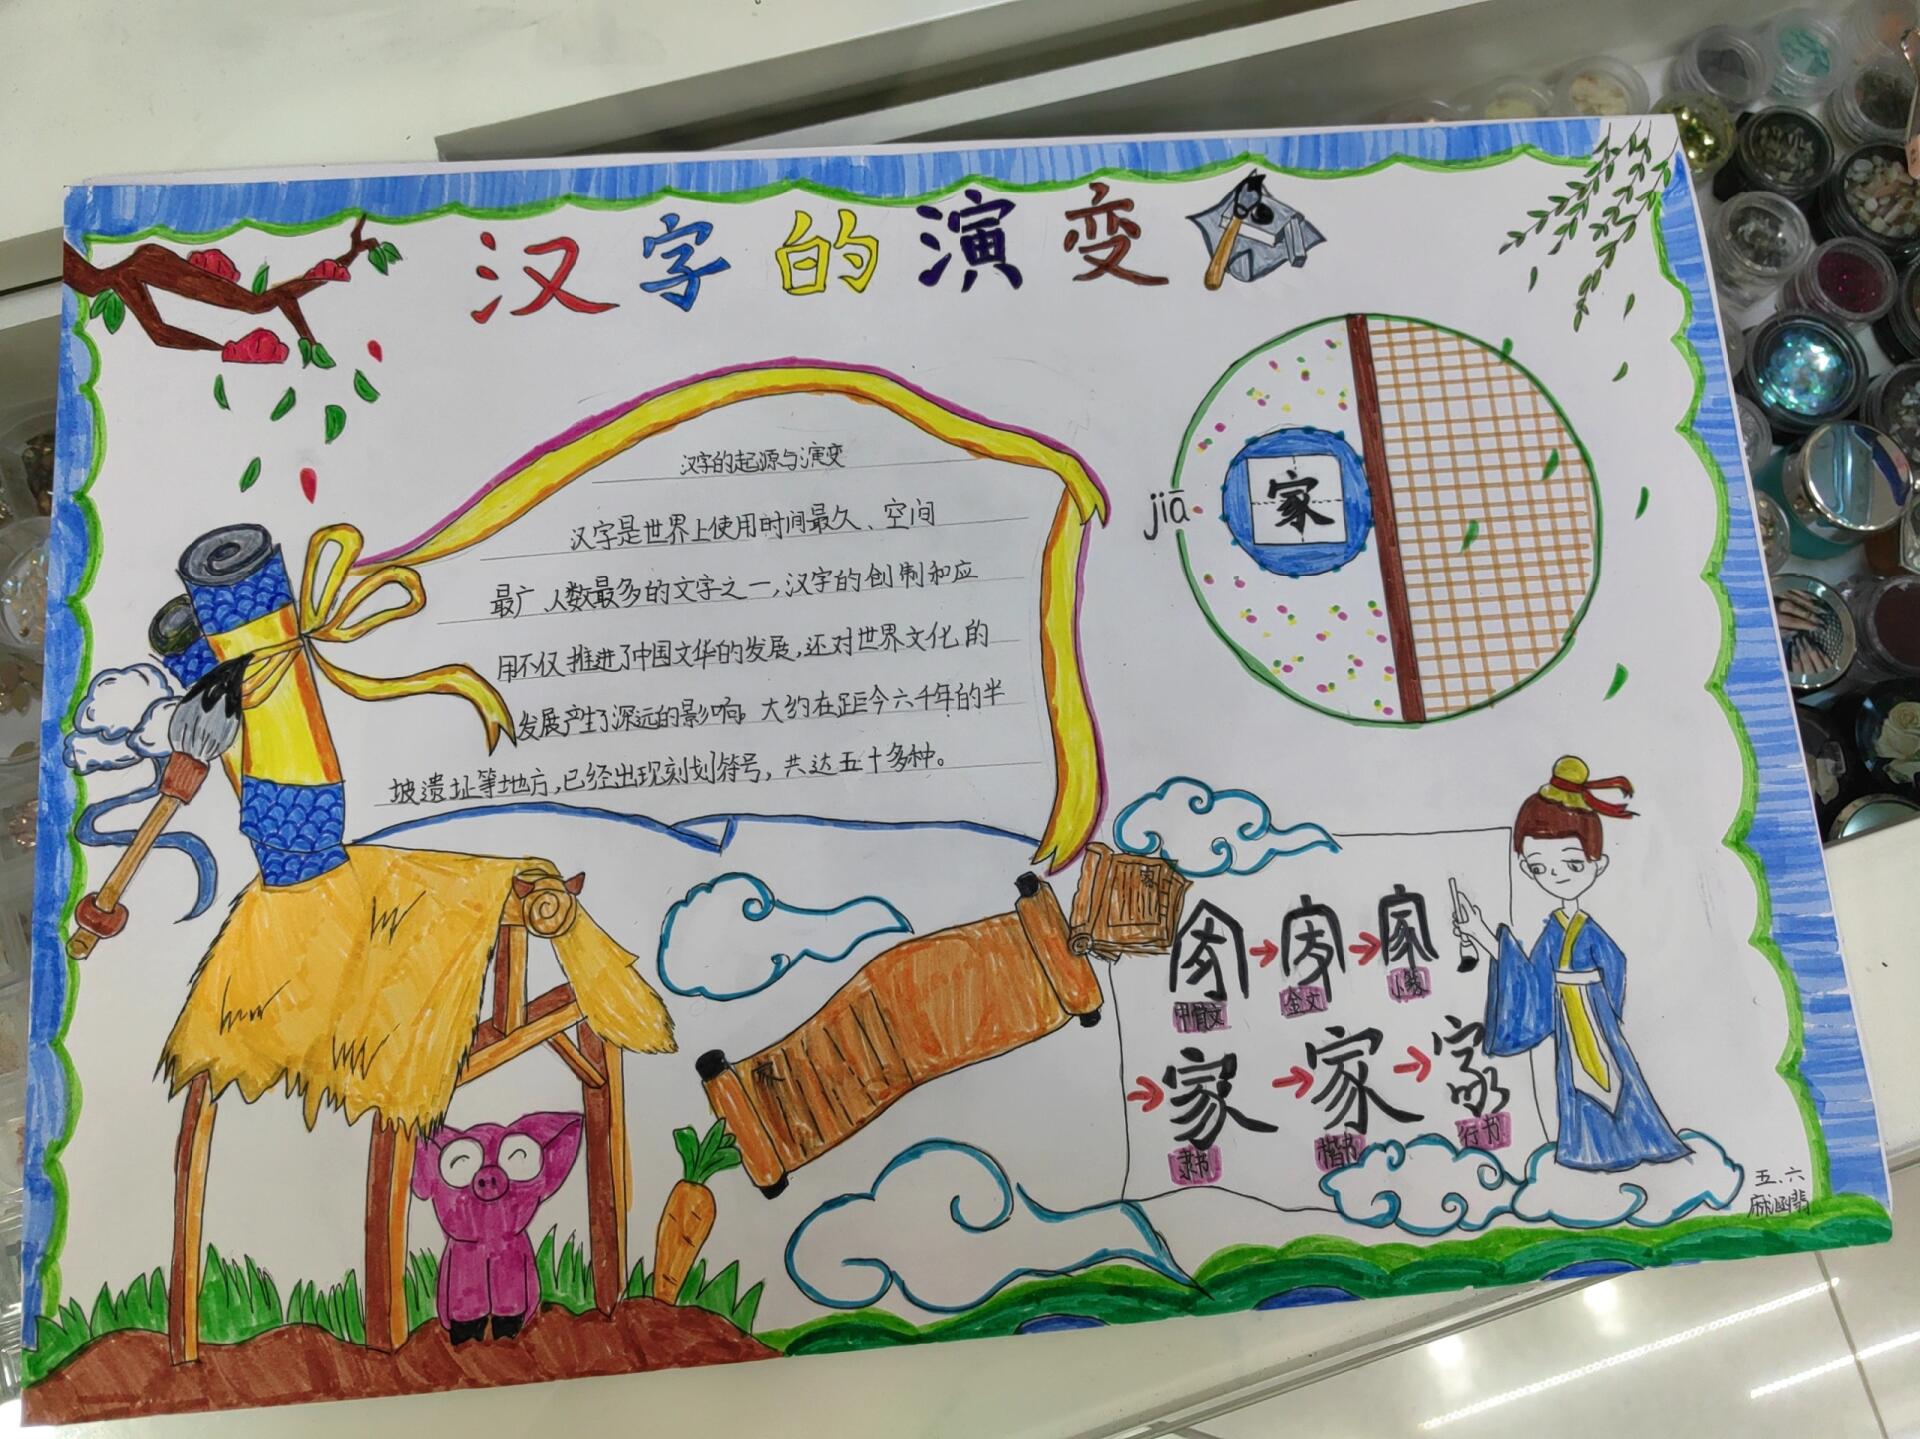 汉字的演变
汉字的起源与演变
汉字是世界上使用时间最久、空间
最广、人数最多的文字之一,汉字的创制和应
用不仅推进了中国文华的发展,还对世界文化的
发展产生了深远的影响。大约在距今六千年的半
坡遗址等地方,已经出现刻划符号,共达五十多种。
jiā
家
甲骨文
金文
小篆
家
家
家
隶书
楷书
行书
五、六